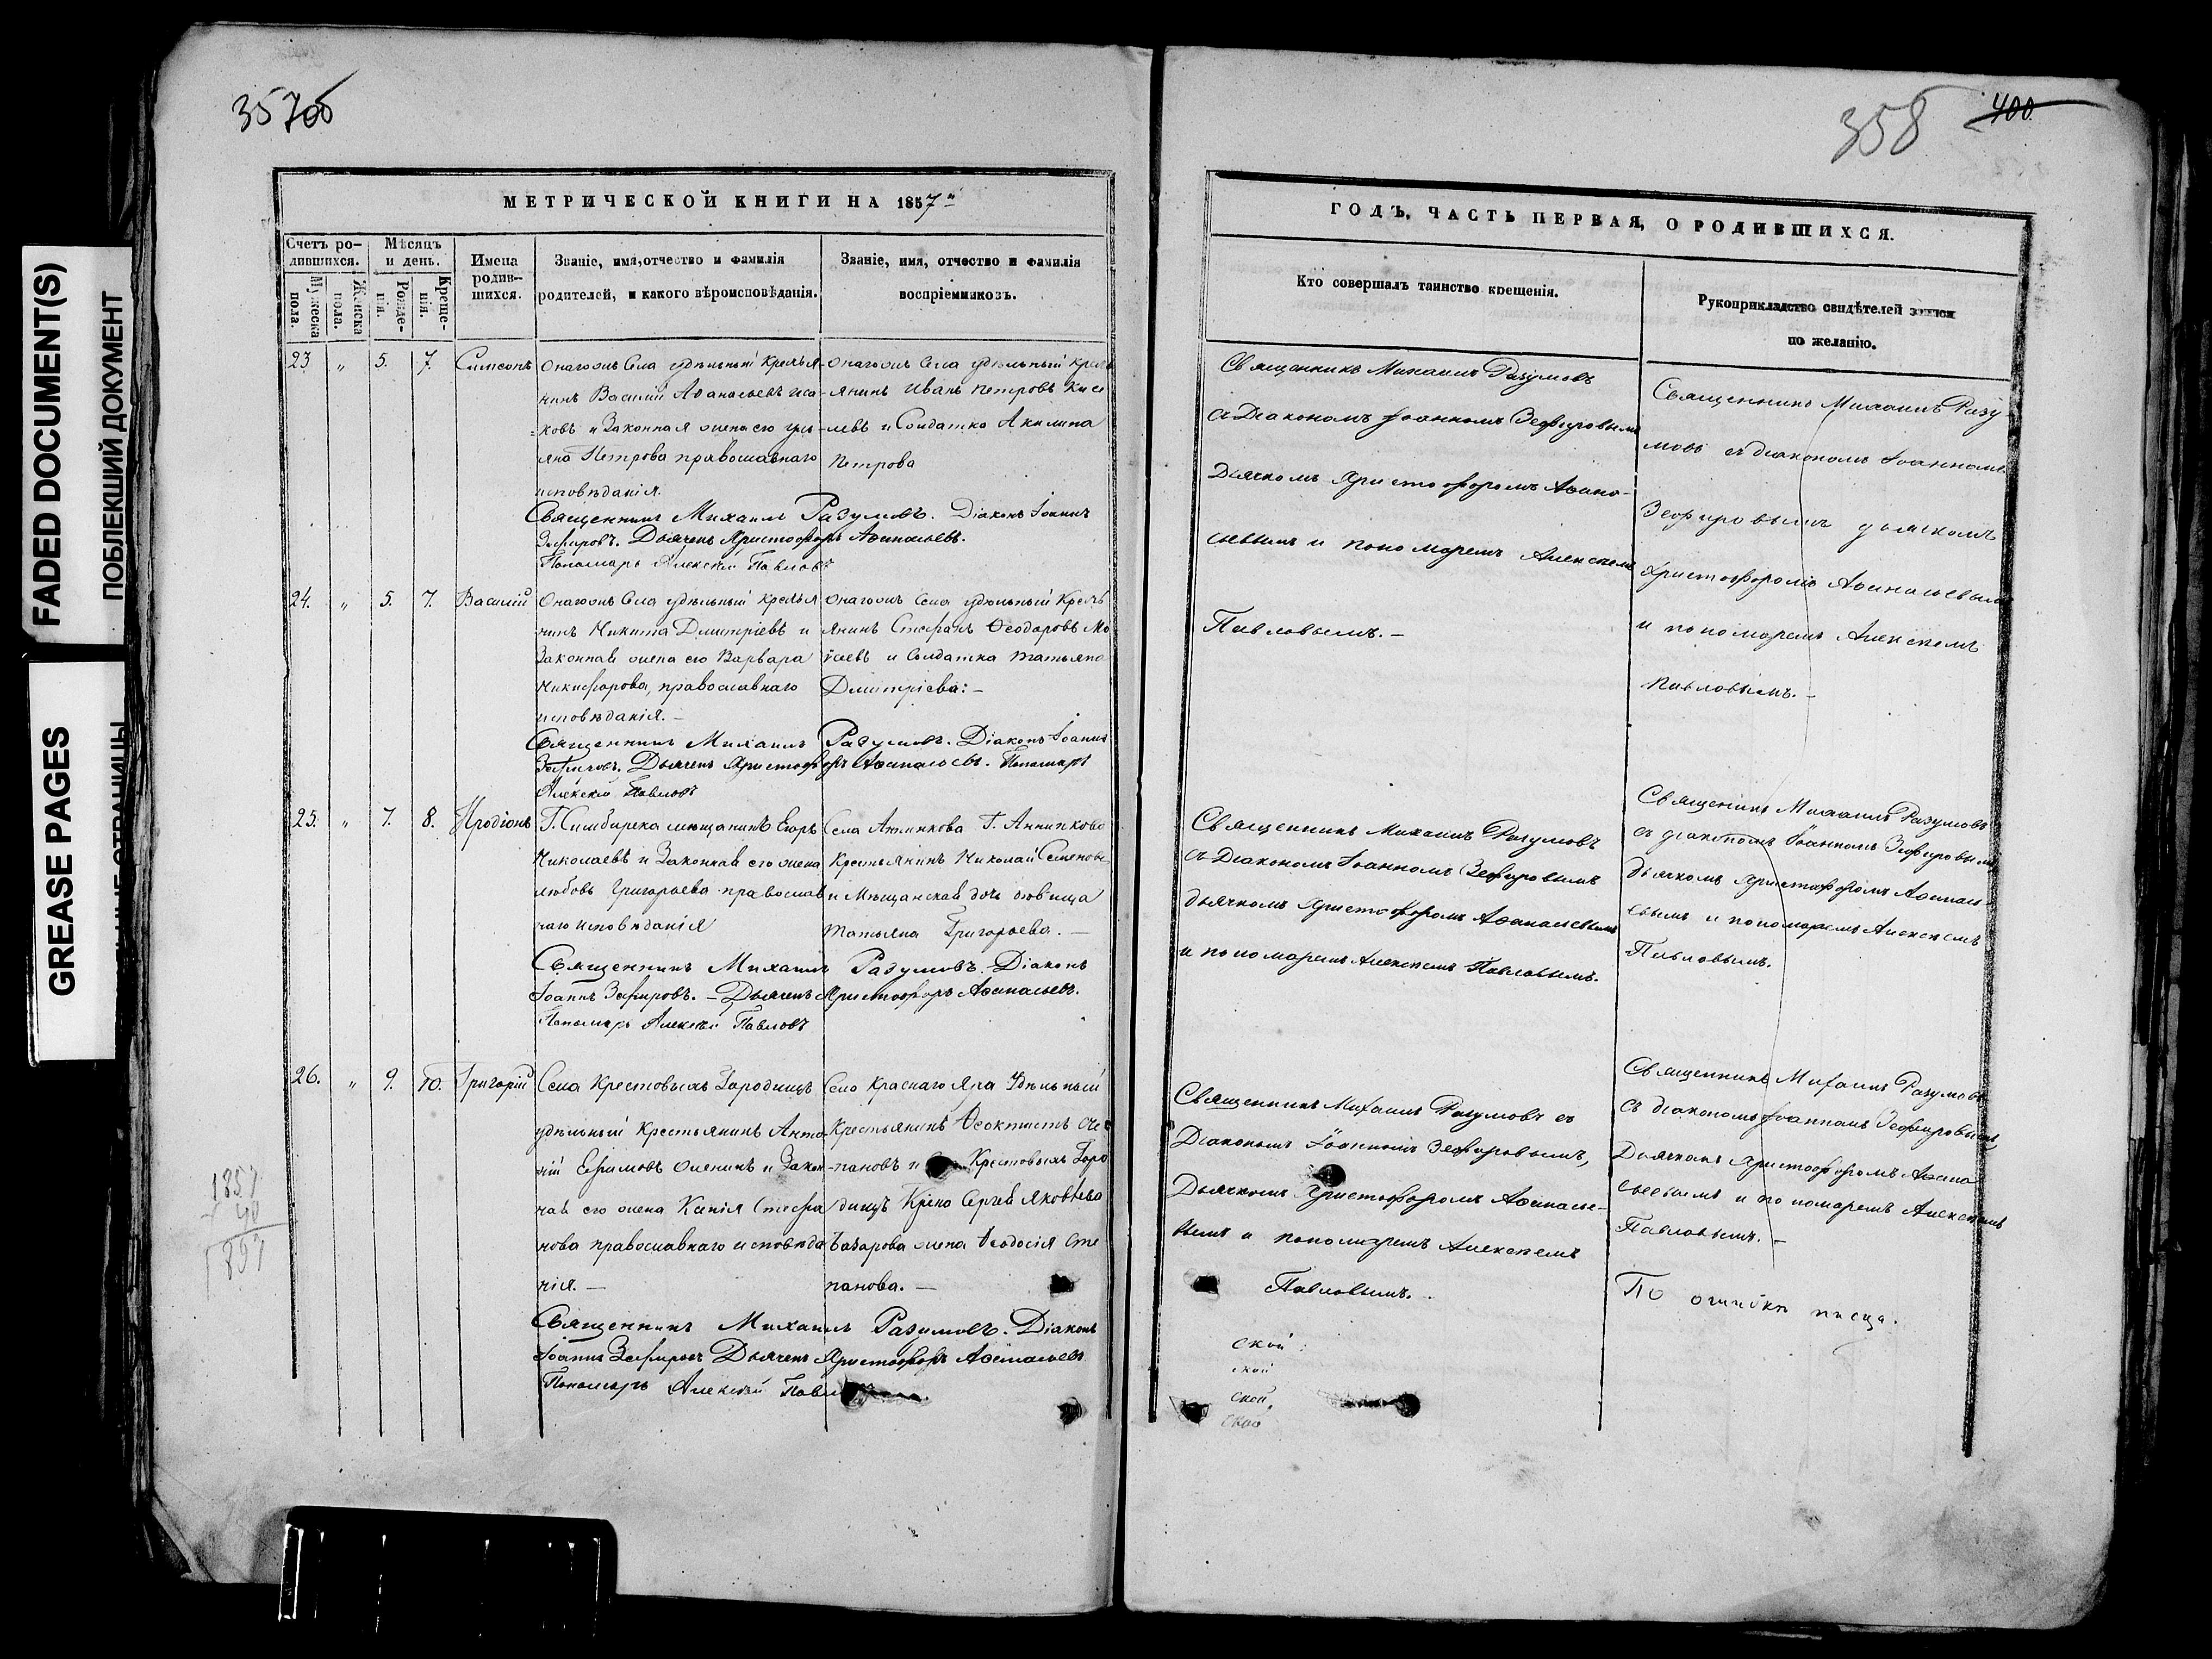 FADED DOCUMENT(S)
ПОБЛЕКШИЙ ДОКУМЕНТ
GREASE PAGES
357
358
400
МЕТРИЧЕСКОЙ КНИГИ НА 1857
Счетъ ро-
дившихся.
Мужеска
пола.
Женска
пола.
Мѣсяцъ
и день.
Рожде-
нія.
Креще-
нія.
Имена
родив-
шихся.
Званіе, имя, отчество и фамилія
родителей, и какого вѣроисповѣданія.
Званіе, имя, отчество и фамилія
воспріемниковъ.
23. " 5. 7. Симеонъ
Онагожъ Села удѣльный крестья-
нинъ Василій Аѳанасьевъ Иса-
ковъ и Законная жена его
Петрова православнаго
исповѣданія.
Онагожъ Села удѣльный крест
янинъ Иванъ Петровъ Кисе
левъ и Солдатка Акилина
Петрова
Священникъ Михаилъ Разумовъ. Діаконъ Іоаннъ
Зефировъ. Дьячекъ Христофоръ Аѳанасьевъ.
Пономарь Алексѣй Павловъ
24. " 5. 7. Василій
Онагожъ Села удѣльный крестья
нинъ Никита Дмитріевъ и
Законная жена его Варвара
Никифорова, православнаго
исповѣданія. –
Онагожъ Села удѣльный Крест
янинъ Стефанъ Ѳеодоровъ Мо
и Солдатка Татьяна
Дмитріева: –
Священникъ Михаилъ Разумовъ. Діаконъ Іоаннъ
Зефировъ. Дьячекъ Христофоръ Аѳанасьевъ. Пономарь
Алексѣй Павловъ
25. " 7. 8. Иродіонъ
Г. Симбирска мѣщанинъ Егоръ
Николаевъ и Законная его жена
Любовь Григорьева православ
наго исповѣданія
Села Анненкова Г. Анненкова
Крестьянинъ Николай Семеновъ
и Мѣщанская дочь дѣвица
Татьяна Григорьева. –
Священникъ Михаилъ Разумовъ. Діаконъ
Іоаннъ Зефировъ. – Дьячекъ Христофоръ Аѳанасьевъ.
Пономарь Алексѣй Павловъ
26. " 9. 10. Григорій
Села Крестовыхъ Городищъ
удѣльный Крестьянинъ Анто
ній Ефимовъ и Закон
ная его жена Ксенія Стефа
нова православнаго исповѣда
нія. –
Село Краснаго Яра Удѣльный
Крестьянинъ Ѳеоктистъ Сте
пановъ и Крестовыхъ Горо
дищъ Сергѣя Яковлева
Базарова жена Ѳеодосія Сте
панова. –
Священникъ Михаилъ Разумовъ. Діаконъ
Іоаннъ Зефировъ Дьячекъ Христофоръ Аѳанасьевъ
Пономарь Алексѣй
1857
40
ГОДЪ, ЧАСТЬ ПЕРВАЯ, О РОДИВШИХСЯ.
Кто совершалъ таинство крещенія.
Рукоприкладство свидѣтелей записи
по желанію.
Священникъ Михаилъ Разумовъ
съ Діакономъ Іоанномъ Зефировымъ
Дьячкомъ Христофоромъ Аѳана-
сьевымъ и пономаремъ Алексѣемъ
Павловымъ. –
Священникъ Михаилъ Разу
мовъ съ діакономъ Іоанномъ
Зефировымъ дьячкомъ
Христофоромъ Аѳанасьевымъ
и пономаремъ Алексѣемъ
Павловымъ. –
Священникъ Михаилъ Разумовъ
съ Діакономъ Іоанномъ Зефировымъ
дьячкомъ Христофоромъ Аѳанасьевымъ
и пономаремъ Алексѣемъ Павловымъ.
Священникъ Михаилъ Разумовъ
съ діакономъ Іоанномъ Зефировымъ
дьячкомъ Христофоромъ Аѳанась-
евымъ и пономаремъ Алексѣемъ
Павловымъ.
Священникъ Михаилъ Разумовъ съ
Діакономъ Іоанномъ Зефировымъ,
Дьячкомъ Христофоромъ Аѳанасье-
вымъ и пономаремъ Алексѣемъ
Павловымъ.
Священникъ Михаилъ Разумовъ
съ діакономъ Іоанномъ Зефировымъ
Дьячкомъ Христофоромъ Аѳана
сьевымъ и пономаремъ Алексѣемъ
Павловымъ. –
По ошибкѣ писца.
ской
ской
ской